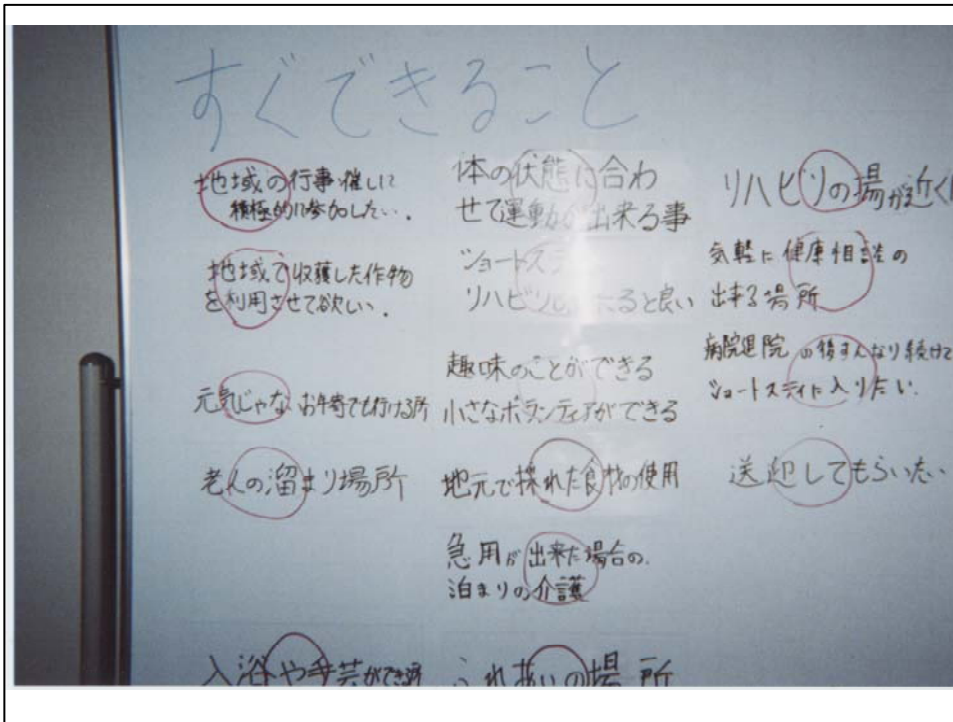 すぐできること
地域の行事・催しに
積極的に参加したい.
地域で収穫した作物
を利用させて欲しい.
元気じゃないお年寄でも行ける所
老人の溜まり場所
入浴や手芸ができる
体の状態に合わ
せて運動が出来る事
ショートステ
リハビリ ると良い
趣味のことができる
小さなボランティアができる
地元で採れた食材の使用
急用が出来た場合の.
泊まりの介護
ふれあいの場所
リハビリの場が近く
気軽に健康相談の
出来る場所
病院退院の後すんなり続けて
ショートステイに入りたい.
送迎してもらいたい